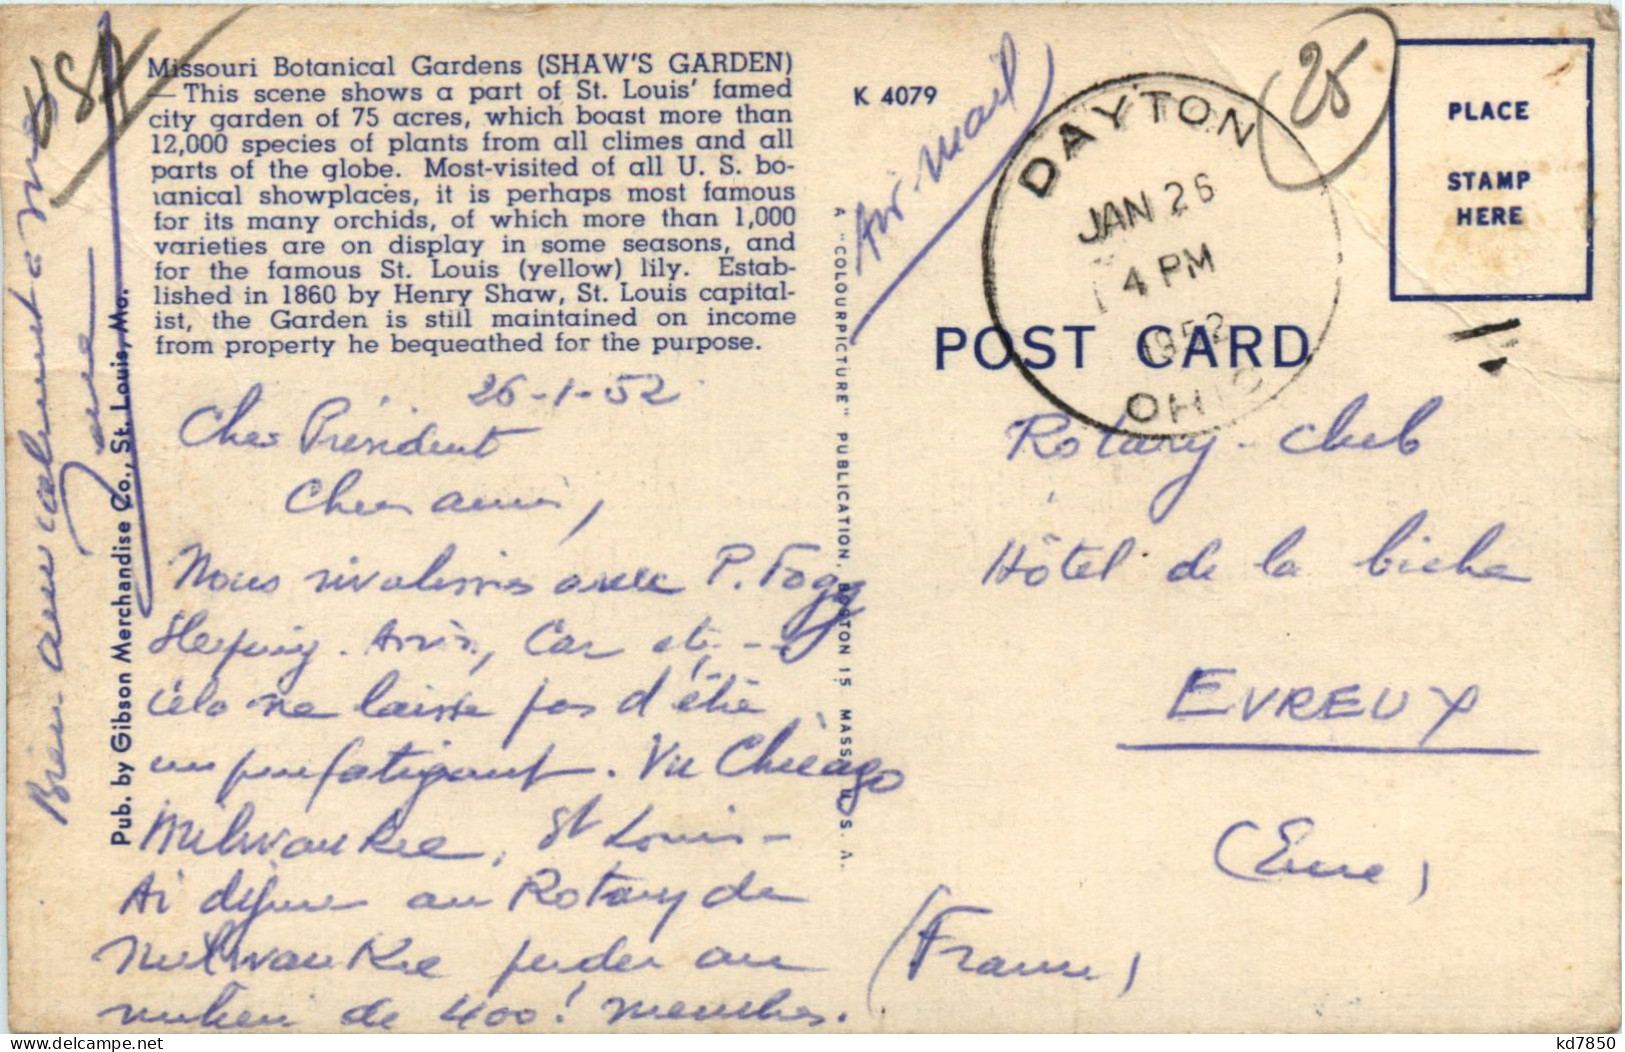 USA
Missouri Botanical Gardens (SHAW'S GARDEN)
— This scene shows a part of St. Louis' famed
city garden of 75 acres, which boast more than
12,000 species of plants from all climes and all
parts of the globe. Most-visited of all U. S. bo-
tanical showplaces, it is perhaps most famous
for its many orchids, of which more than 1,000
varieties are on display in some seasons, and
for the famous St. Louis (yellow) lily. Estab-
lished in 1860 by Henry Shaw, St. Louis capital-
ist, the Garden is still maintained on income
from property he bequeathed for the purpose.
26-1-52
Cher Président
Chers amis,
Nous rivalisons avec P. Fogg
Sleeping. Avion, Car etc --
cela ne laisse pas d'être
un peu fatigant. Vu Chicago
Milwaukee, St Louis -
Ai déjeuné au Rotary de
Milwaukee perdu au
milieu de 400! membres.
Bien amicalement à vous
Pub. by Gibson Merchandise Co., St. Louis, Mo.
A "COLOURPICTURE" PUBLICATION, BOSTON 15 MASS., U. S. A.
K 4079
Air mail
DAYTON
JAN 26
4 PM
1952
OHIO
25
PLACE
STAMP
HERE
POST CARD
Rotary-Club
Hôtel de la biche
EVREUX
(Eure)
(France)
kd7850